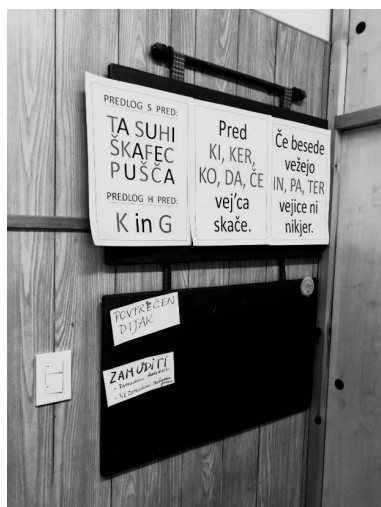 PREDLOG S PRED:
TA SUHI
ŠKAFEC
PUŠČA
PREDLOG H PRED:
K in G
Pred
KI, KER,
KO, DA, ČE
vej'ca
skače.
Če besede
vežejo
IN, PA, TER
vejice ni
nikjer.
POVPREČEN
DIJAK
ZAMUDITI